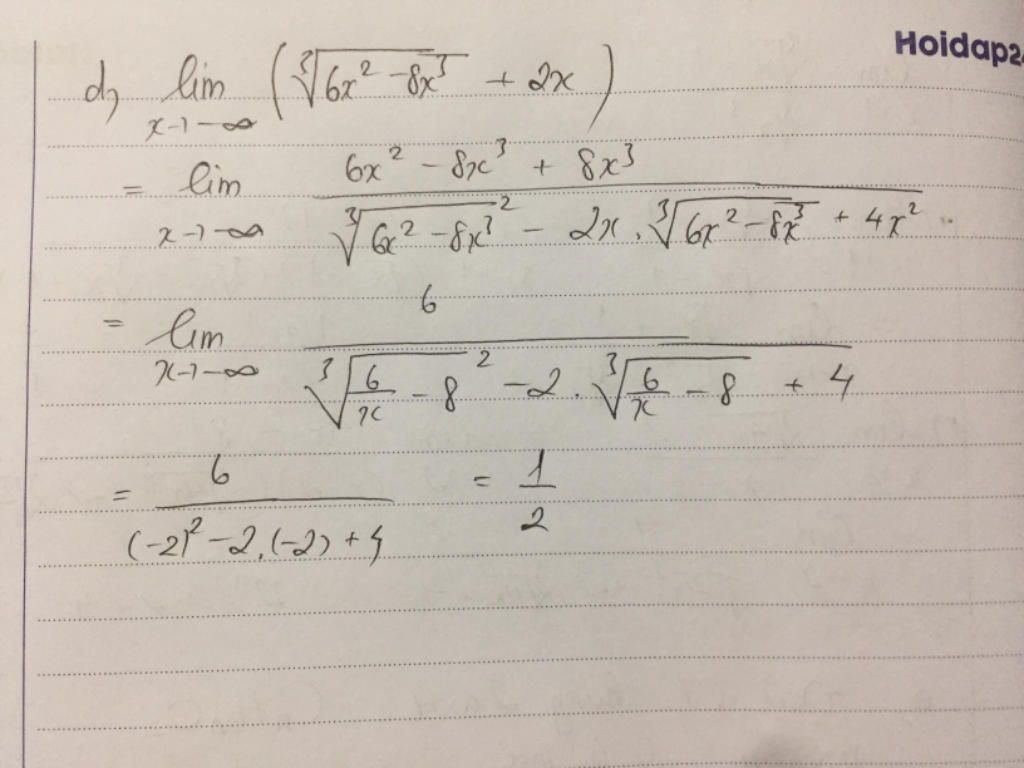 Hoidap2
d, lim x→-∞ (∛(6x² - 8x³) + 2x)
= lim x→-∞ (6x² - 8x³ + 8x³) / (∛(6x² - 8x³)² - 2x.∛(6x² - 8x³) + 4x²)
= lim x→-∞ 6 / (∛(6/x - 8)² - 2.∛(6/x - 8) + 4)
= 6 / ((-2)² - 2.(-2) + 4) = 1/2